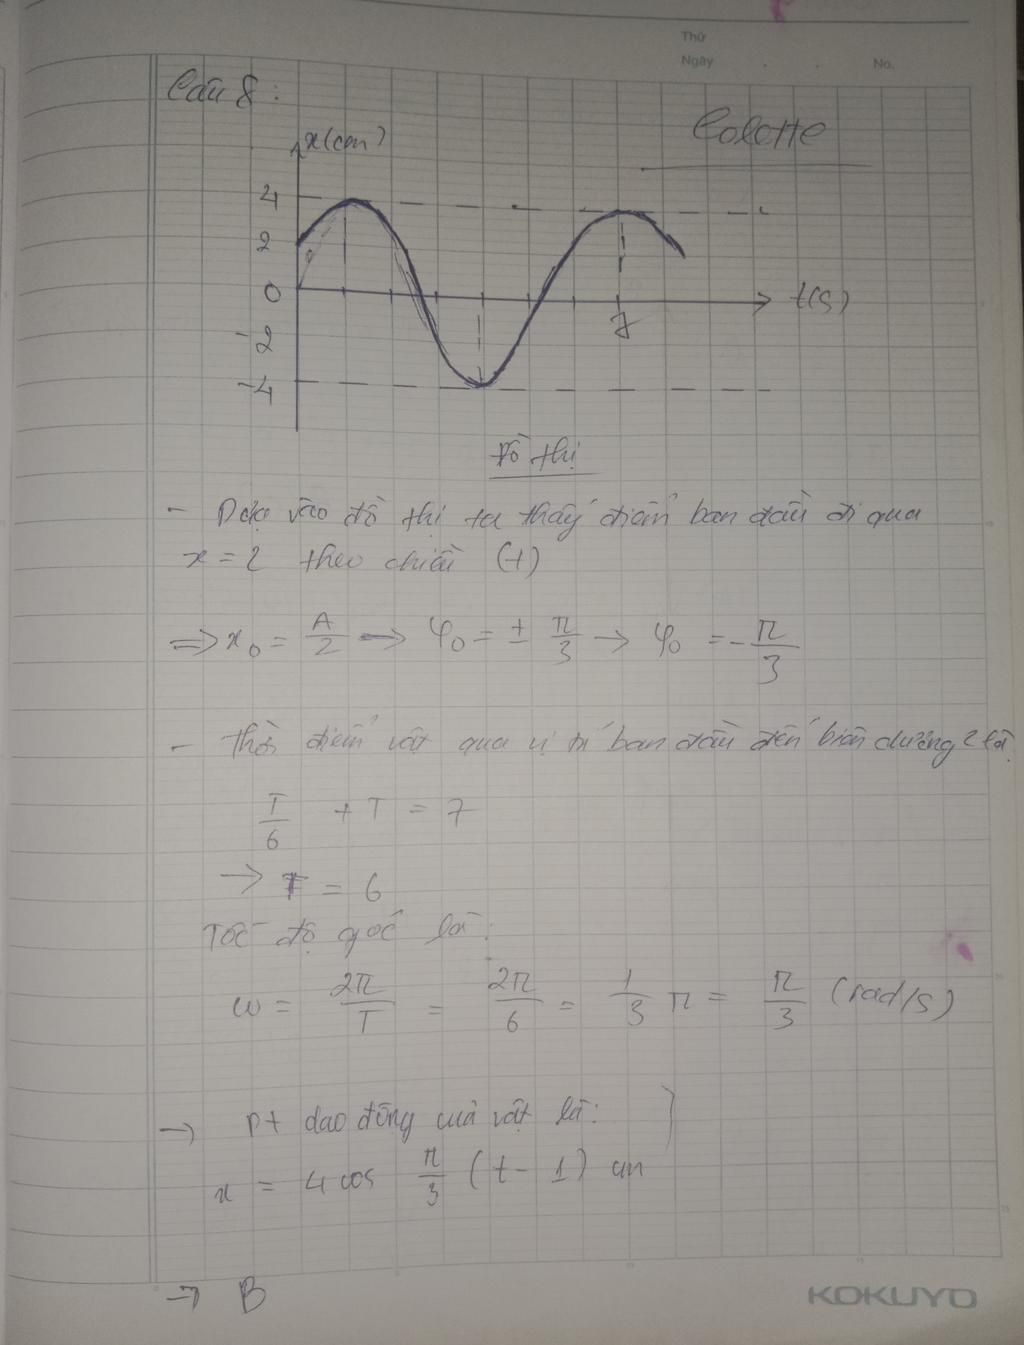 Thứ
Ngày . . No.
Câu 8:
Colette
x(cm)
4
2
0
-2
-4
t(s)
7
Đồ thị
- Dựa vào đồ thị ta thấy điểm ban đầu đi qua
x = 2 theo chiều (+)
=> x₀ = A/2 → φ₀ = ± π/3 → φ₀ = - π/3
- Thời điểm vật qua vị trí ban đầu đến biên dương 2 là
T/6 + T = 7
→ T = 6
Tốc độ góc là:
ω = 2π/T = 2π/6 = 1/3 π = π/3 (rad/s)
→ pt dao động của vật là:
x = 4 cos π/3 (t - 1) cm
→ B
KOKUYO